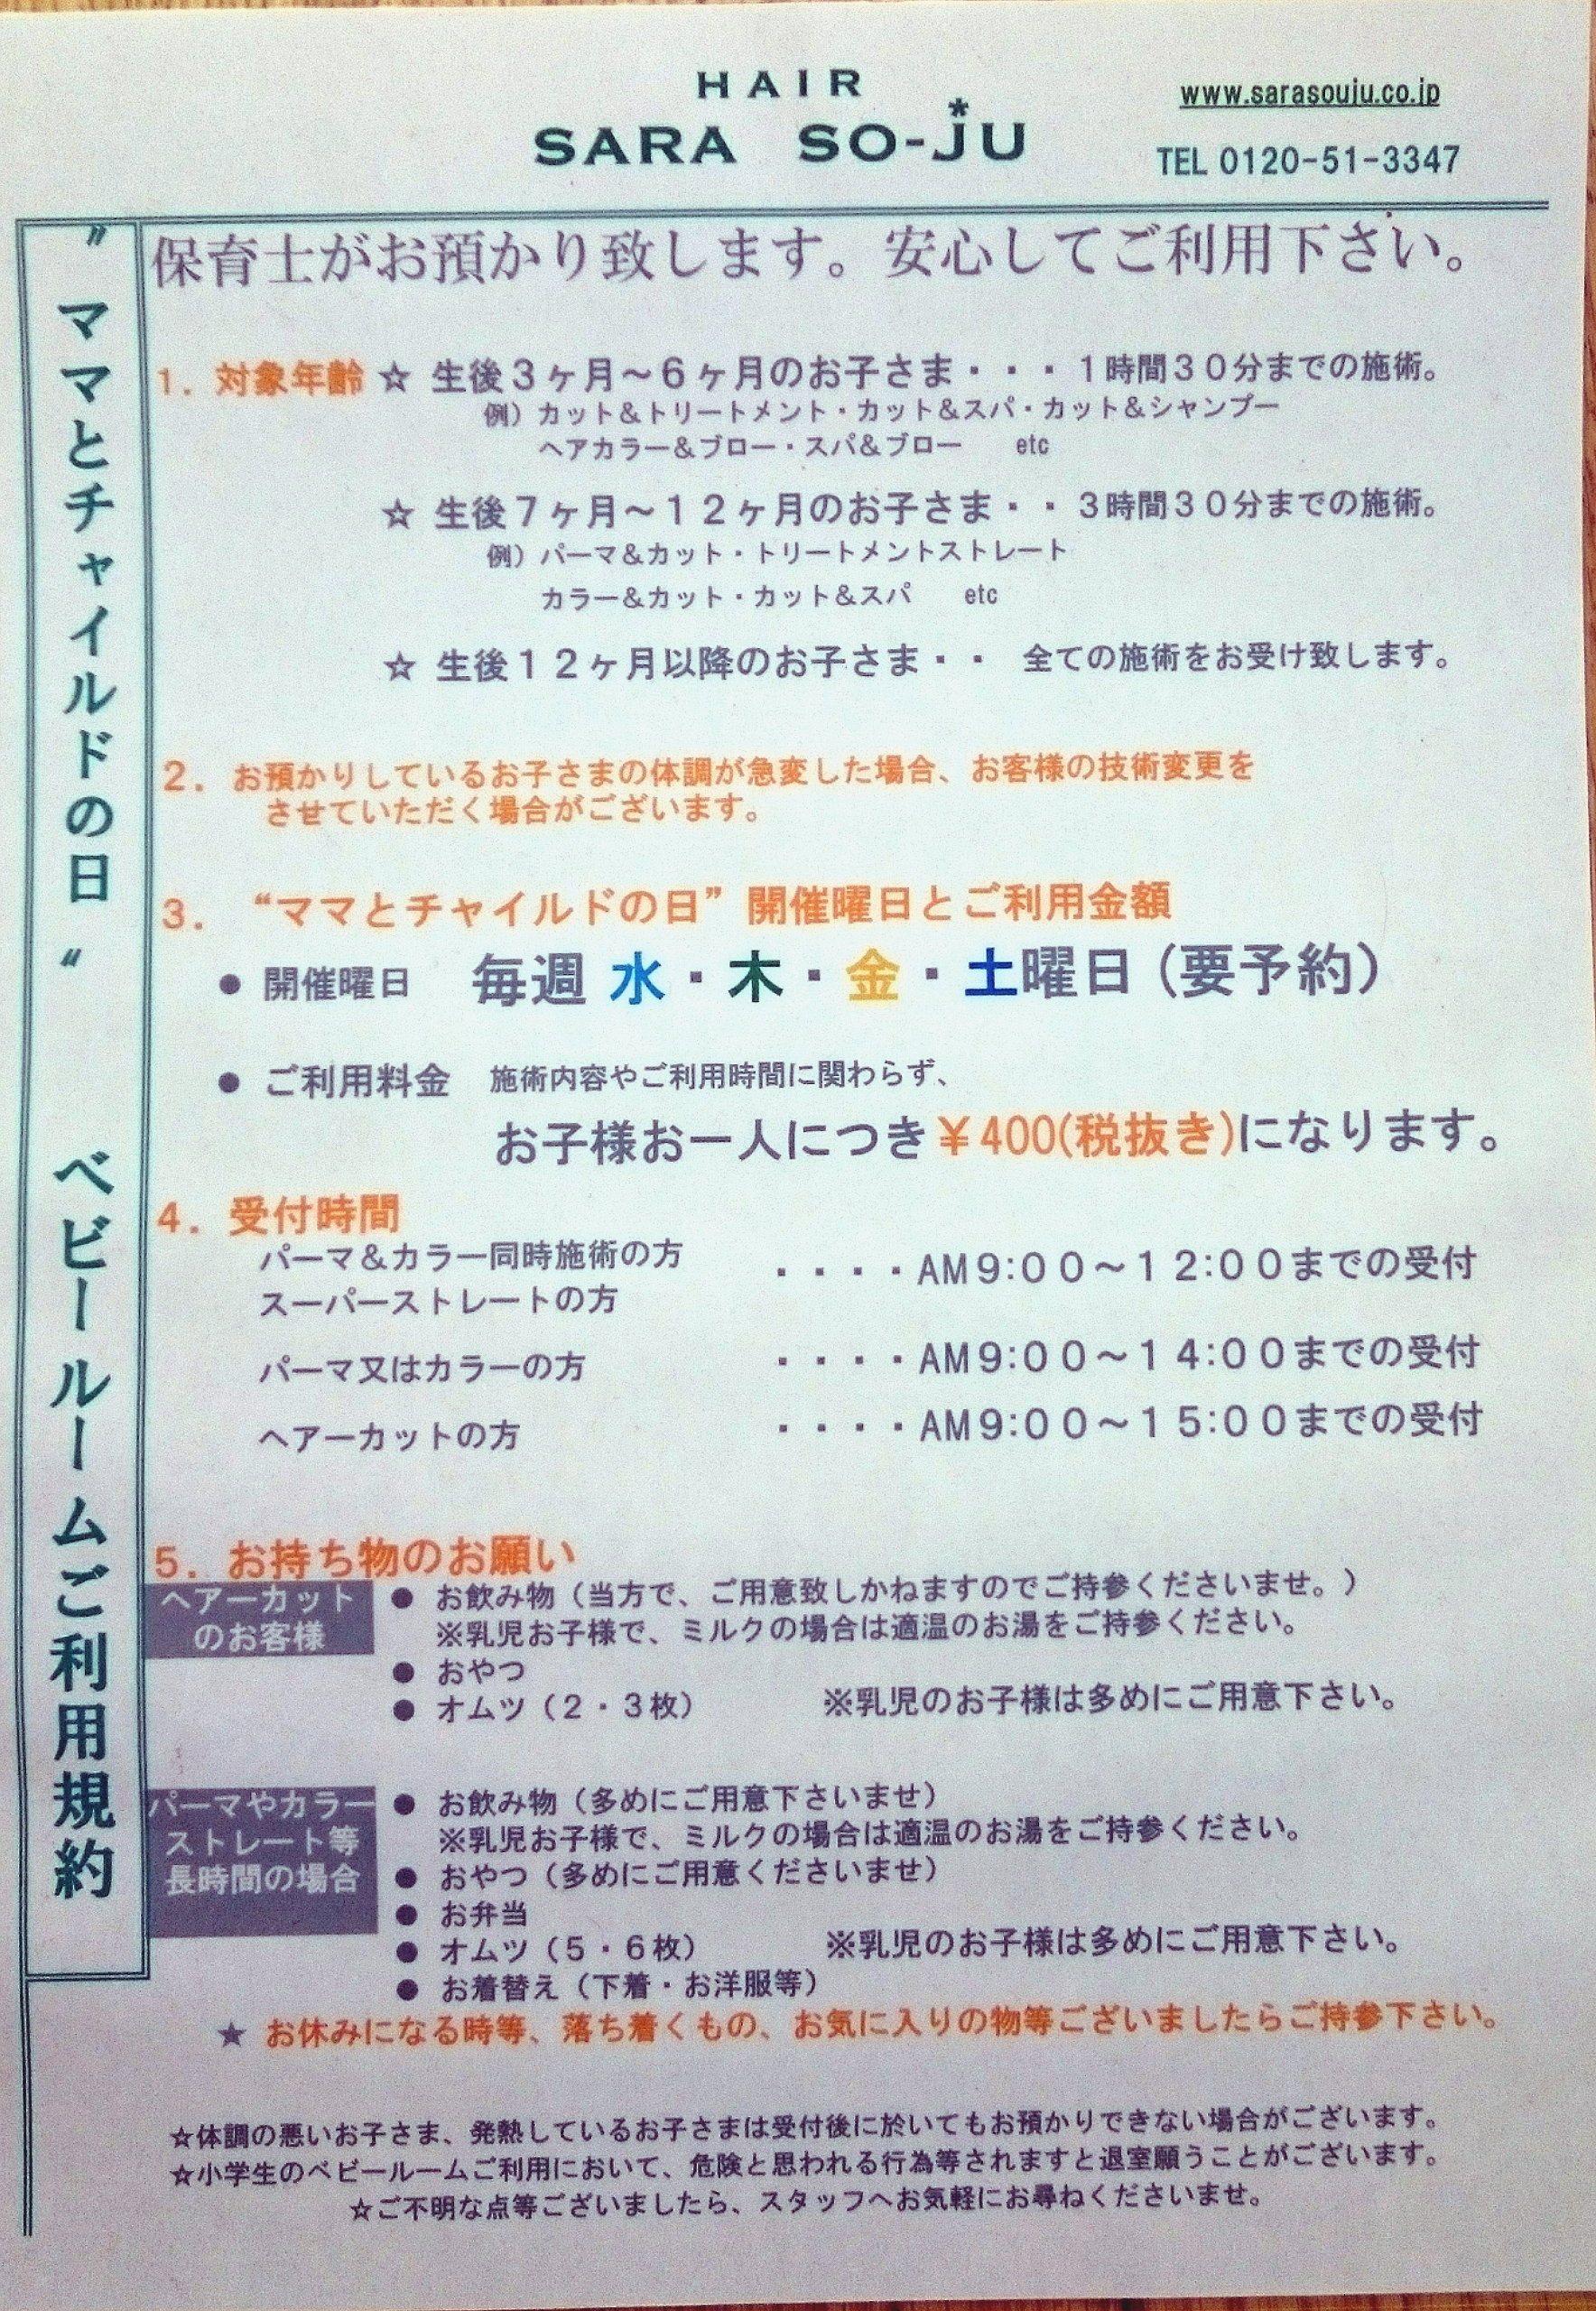 HAIR
SARA SO-JU
www.sarasouju.co.jp
TEL 0120-51-3347
〃ママとチャイルドの日〃 ベビールームご利用規約
保育士がお預かり致します。安心してご利用下さい。
1. 対象年齢 ☆ 生後3ヶ月～6ヶ月のお子さま・・・1時間30分までの施術。
例）カット&トリートメント・カット&スパ・カット&シャンプー
ヘアカラー&ブロー・スパ&ブロー etc
☆ 生後7ヶ月～12ヶ月のお子さま・・3時間30分までの施術。
例）パーマ&カット・トリートメントストレート
カラー&カット・カット&スパ etc
☆ 生後12ヶ月以降のお子さま・・ 全ての施術をお受け致します。
2. お預かりしているお子さまの体調が急変した場合、お客様の技術変更を
させていただく場合がございます。
3. “ママとチャイルドの日”開催曜日とご利用金額
● 開催曜日 毎週 水・木・金・土曜日（要予約）
● ご利用料金 施術内容やご利用時間に関わらず、
お子様お一人につき￥400(税抜き)になります。
4. 受付時間
パーマ&カラー同時施術の方
スーパーストレートの方 ・・・・AM9:00～12:00までの受付
パーマ又はカラーの方 ・・・・AM9:00～14:00までの受付
ヘアーカットの方 ・・・・AM9:00～15:00までの受付
5. お持ち物のお願い
ヘアーカット
のお客様
● お飲み物（当方で、ご用意致しかねますのでご持参くださいませ。）
※乳児お子様で、ミルクの場合は適温のお湯をご持参ください。
● おやつ
● オムツ（2・3枚） ※乳児のお子様は多めにご用意下さい。
パーマやカラー
ストレート等
長時間の場合
● お飲み物（多めにご用意下さいませ）
※乳児お子様で、ミルクの場合は適温のお湯をご持参ください。
● おやつ（多めにご用意くださいませ）
● お弁当
● オムツ（5・6枚） ※乳児のお子様は多めにご用意下さい。
● お着替え（下着・お洋服等）
★ お休みになる時等、落ち着くもの、お気に入りの物等ございましたらご持参下さい。
☆体調の悪いお子さま、発熱しているお子さまは受付後に於いてもお預かりできない場合がございます。
☆小学生のベビールームご利用において、危険と思われる行為等されますと退室願うことがございます。
☆ご不明な点等ございましたら、スタッフへお気軽にお尋ねくださいませ。